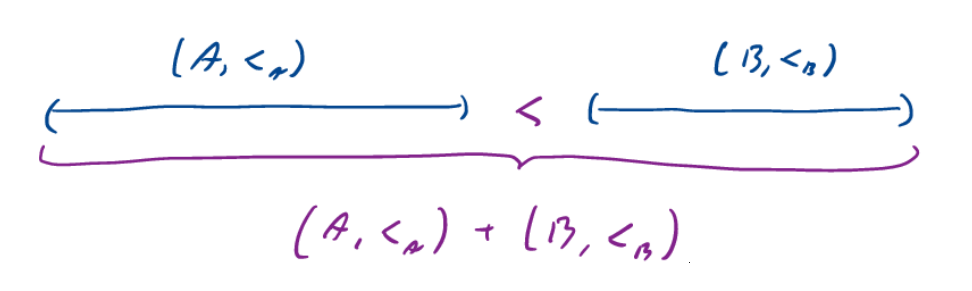 (A, <_A) (B, <_B)
( ) < ( )
(A, <_A) + (B, <_B)